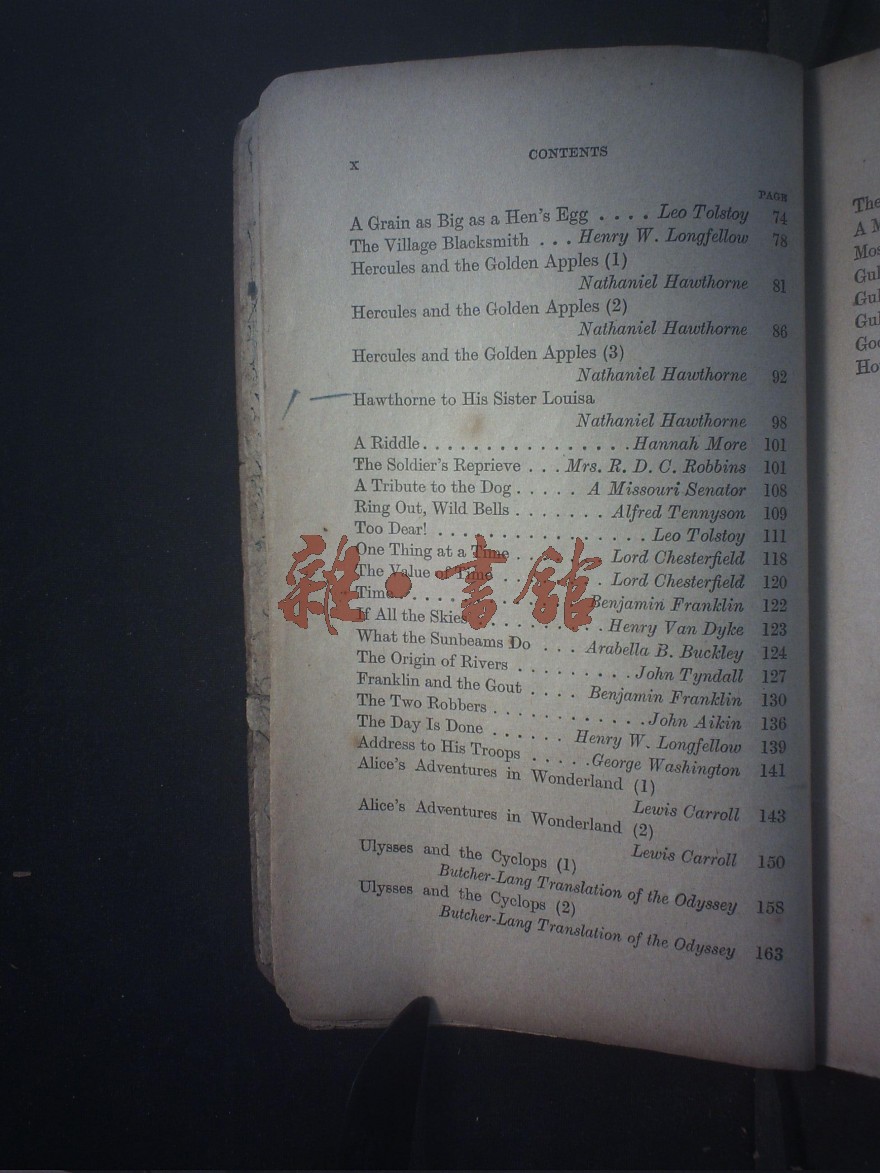 x
CONTENTS
PAGE
A Grain as Big as a Hen's Egg . . . . Leo Tolstoy 74
The Village Blacksmith . . . Henry W. Longfellow 78
Hercules and the Golden Apples (1)
Nathaniel Hawthorne 81
Hercules and the Golden Apples (2)
Nathaniel Hawthorne 86
Hercules and the Golden Apples (3)
Nathaniel Hawthorne 92
Hawthorne to His Sister Louisa
Nathaniel Hawthorne 98
A Riddle . . . . . . . . . . . . . . . . . Hannah More 101
The Soldier's Reprieve . . . Mrs. R. D. C. Robbins 101
A Tribute to the Dog . . . . . A Missouri Senator 108
Ring Out, Wild Bells . . . . . . . Alfred Tennyson 109
Too Dear! . . . . . . . . . . . . . . . . . Leo Tolstoy 111
One Thing at a Time . . . . . . . Lord Chesterfield 118
The Value of Time . . . . . . . . Lord Chesterfield 120
Time . . . . . . . . . . . . . . . Benjamin Franklin 122
If All the Skies . . . . . . . . . . . Henry Van Dyke 123
What the Sunbeams Do . . . Arabella B. Buckley 124
The Origin of Rivers . . . . . . . . . John Tyndall 127
Franklin and the Gout . . . . Benjamin Franklin 130
The Two Robbers . . . . . . . . . . . . . John Aikin 136
The Day Is Done . . . . . . Henry W. Longfellow 139
Address to His Troops . . . . . George Washington 141
Alice's Adventures in Wonderland (1)
Lewis Carroll 143
Alice's Adventures in Wonderland (2)
Lewis Carroll 150
Ulysses and the Cyclops (1)
Butcher-Lang Translation of the Odyssey 158
Ulysses and the Cyclops (2)
Butcher-Lang Translation of the Odyssey 163
雜·書館
The
A M
Mos
Gul
Gul
Gul
Goo
Ho